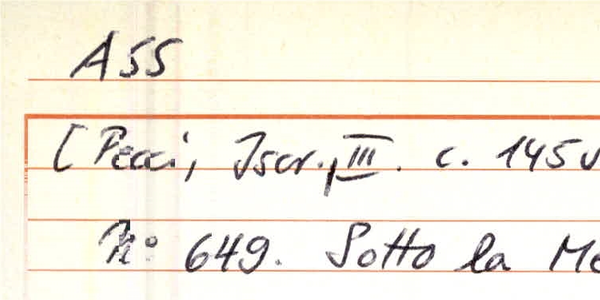 ASS
[Pecci, Iscr., III. c. 145v
N° 649. Sotto la Me